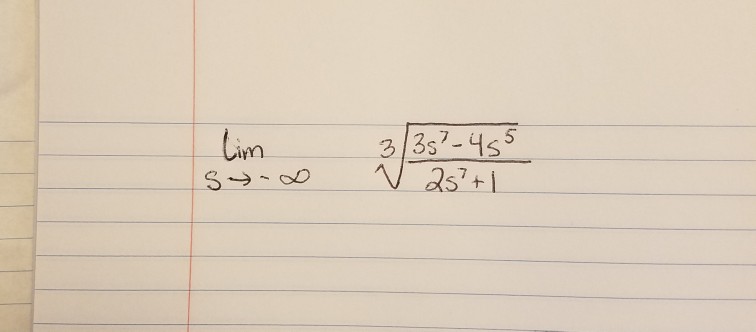 lim s→-∞ ∛((3s⁷-4s⁵)/(2s⁷+1))